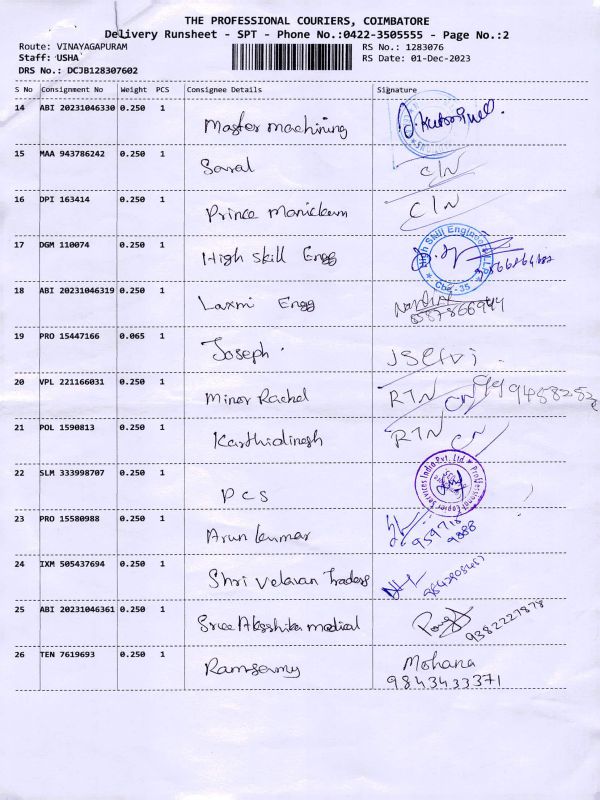 THE PROFESSIONAL COURIERS, COIMBATORE
Delivery Runsheet - SPT - Phone No.:0422-3505555 - Page No.:2
Route: VINAYAGAPURAM RS No.: 1283076
Staff: USHA RS Date: 01-Dec-2023
DRS No.: DCJB128307602
S No Consignment No Weight PCS Consignee Details Signature
14 ABI 20231046330 0.250 1 Master machining
15 MAA 943786242 0.250 1 Saral C/N
16 DPI 163414 0.250 1 Prince Manickam C/N
17 DGM 110074 0.250 1 High Skill Engg
High Skill Engineers LLP
Cbe-35
18 ABI 20231046319 0.250 1 Laxmi Engg
19 PRO 15447166 0.065 1 Joseph. JSelvi
20 VPL 221166031 0.250 1 Minor Rachel RTN CN
21 POL 1590813 0.250 1 Karthidinesh RTN CN
22 SLM 333998707 0.250 1 PCS
Professional Copier Services India Pvt. Ltd
23 PRO 15580988 0.250 1 Arun kumar
24 IXM 505437694 0.250 1 Shri Velavan Traders
25 ABI 20231046361 0.250 1 Sree Aksshika medical 9382227878
26 TEN 7619693 0.250 1 Ramsamy Mohana
9843433371